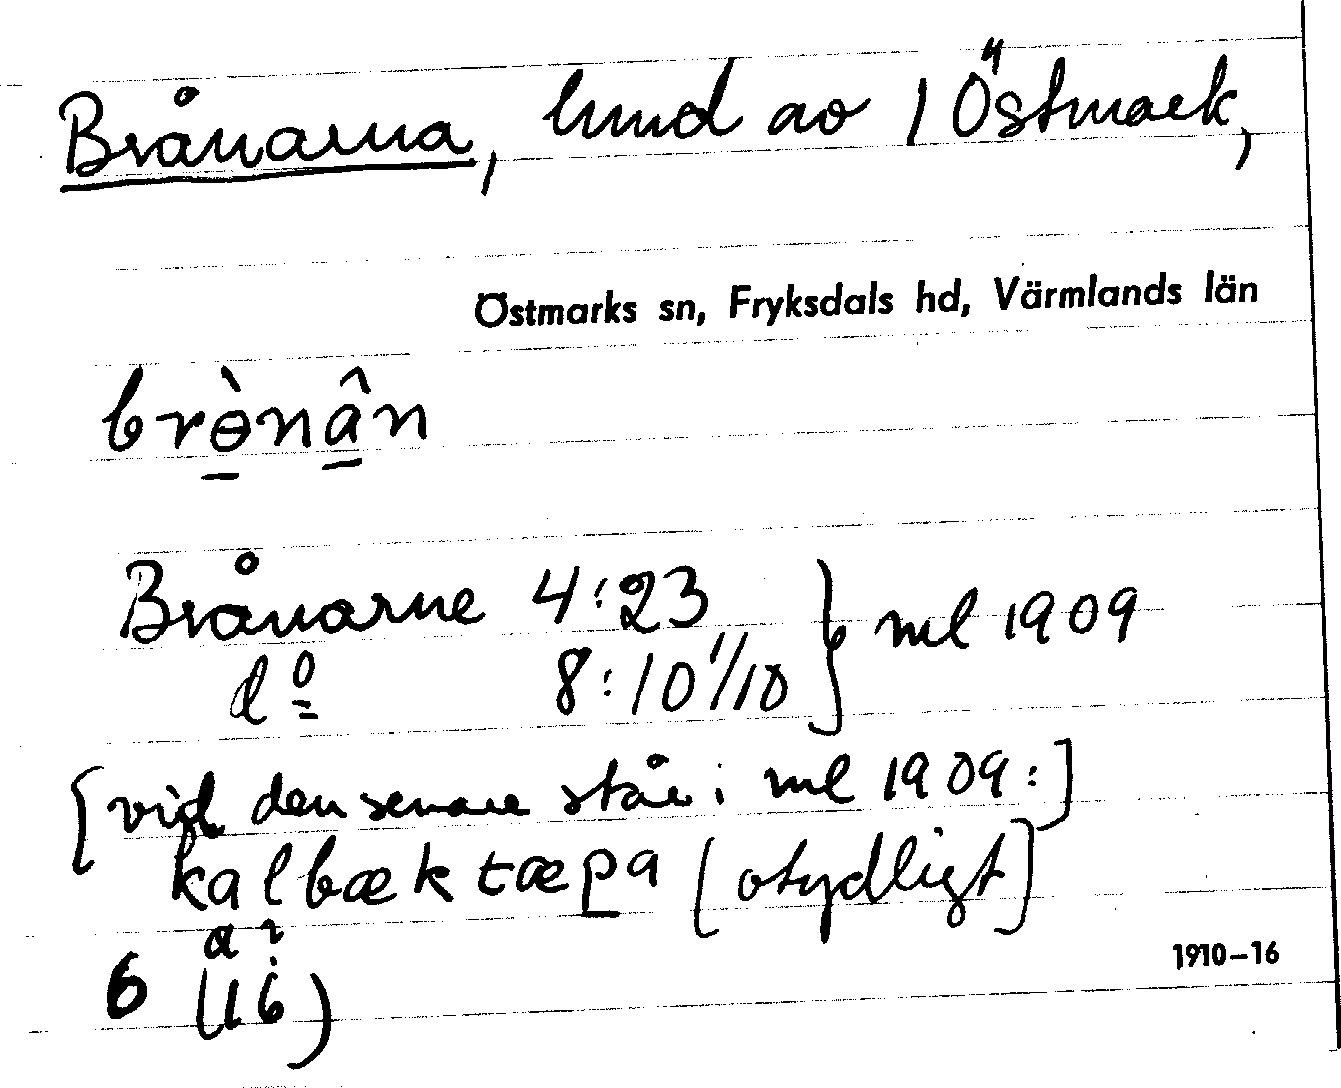 Brånarna, hmd av 1 Östmark,
Östmarks sn, Fryksdals hd, Värmlands län
brɵ̠̀nâ̠n
Brånarne 4:23 } ml 1909
do 8:10 1/10
[vid den senare står i ml 1909:]
kalbæktæpa [otydligt]
a ?
6 (16)
1910–16